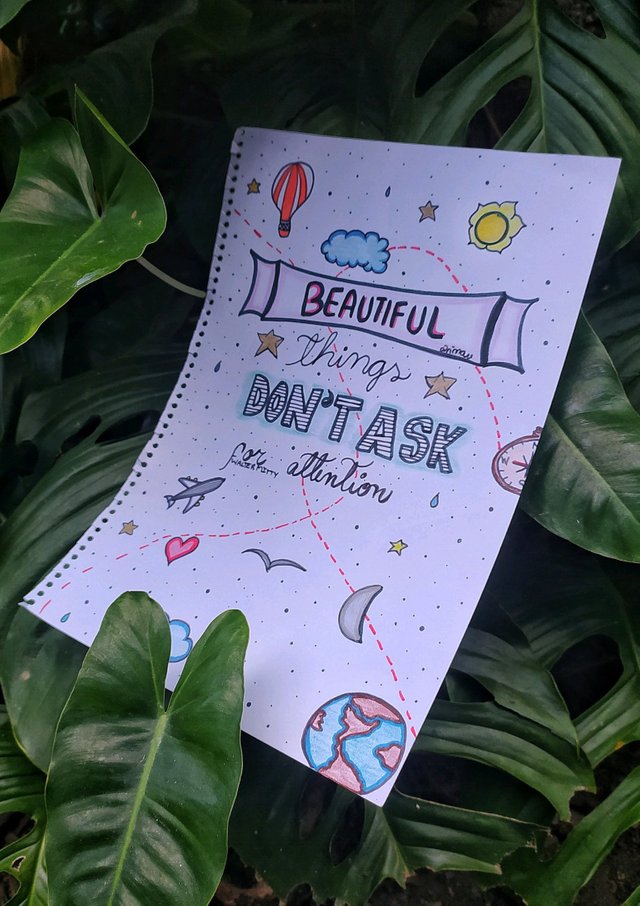 BEAUTIFUL
things
DON'T ASK
for attention
WALTER MITTY